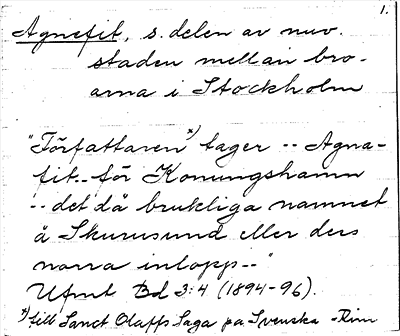 1.
Agnefit, s. delen av nuv.
staden mellan bro-
arna i Stockholm
"Författaren*) tager -- Agna-
fit -- för Konungshamn
-- det då brukliga namnet
å Skurusund eller ders
norra inlopp --"
Ufmt Bd 3:4 (1894-96).
*) till Sanct Olaffs Saga på Svenska Rim